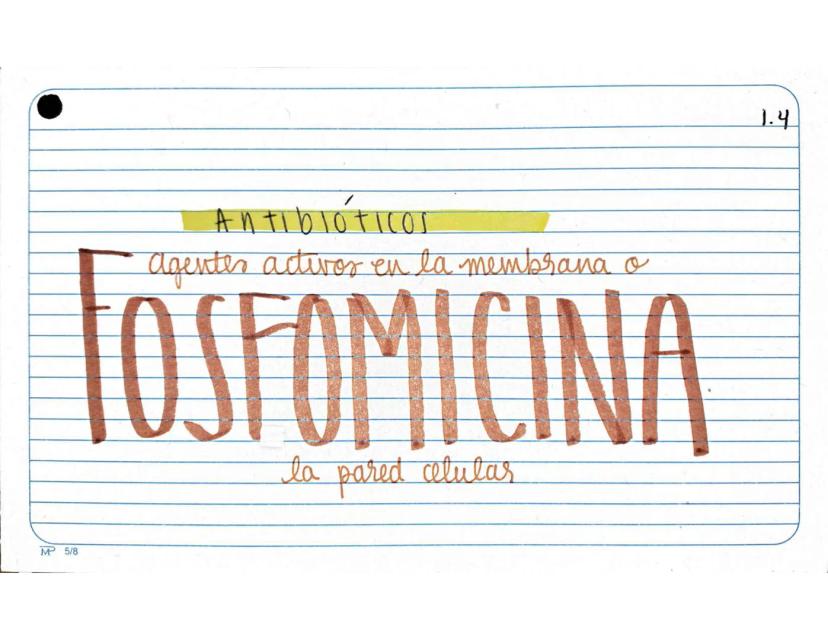 1.4
Antibióticos
agentes activos en la membrana o
FOSFOMICINA
la pared celular
MP 5/8